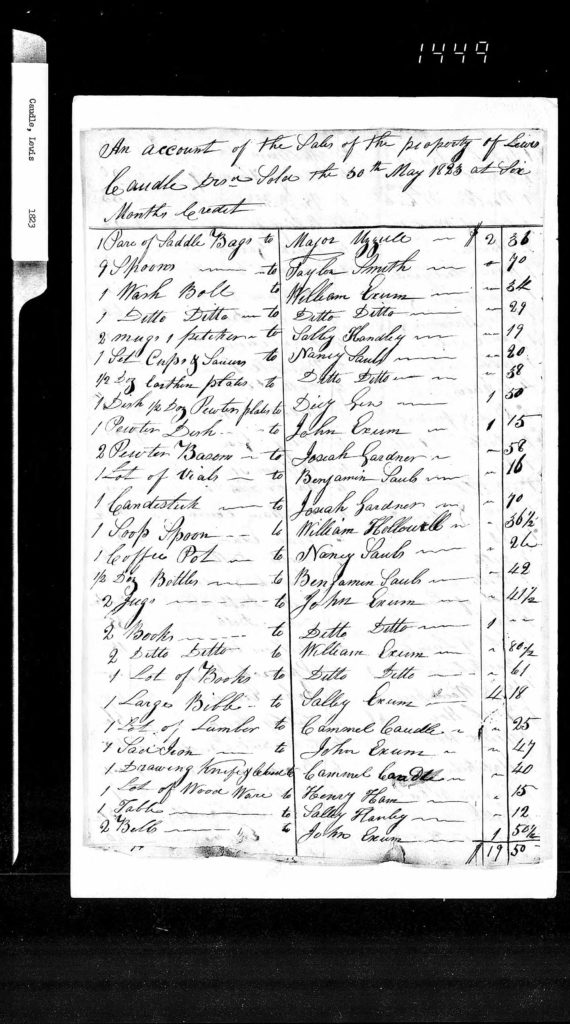 1449
Caudle, Lewis 1823
An account of the Sales of the property of Lewis
Caudle Sold the 30th May 1823 at Six
Months Credit
1 Pare of Saddle Bags to Major $ 2 36
9 Spoons to Taylor Smith 70
1 Wash Boll to William Exum
1 Ditto Ditto to Ditto Ditto 29
2 mugs 1 pitcher to Salley Handley 19
1 Set Cups & Saucers to Nancy Sauls 20
1/2 Doz Earthen plates to Ditto Ditto
1 Dish 1/2 Doz Pewter plates to 1 50
1 Pewter Dish to John Exum 1 15
2 Pewter Basons to Josiah Gardner 58
1 Lot of Vials to Benjamin Sauls 16
1 Candlestick to Josiah Gardner 70
1 Soop Spoon to William Hollowell 36 1/2
1 Coffee Pot to Nancy Sauls
1/2 Doz Bottles to Benjamin Sauls 42
2 Jugs to John Exum 41 1/2
2 Books to Ditto Ditto 1
2 Ditto Ditto to William Exum 80 1/2
1 Lot of Books to Ditto Ditto 61
1 Large Bible to Salley Exum 4 18
1 Lot of Lumber to Cammel Caudle 25
Sad Iron to John Exum 47
1 Drawing Knife & to Cammel Caudle 40
1 Lot of Wood Ware to Henry Ham 15
1 Table to Salley Hanley 12
2 to John Exum 1 50 1/2
$ 19 50